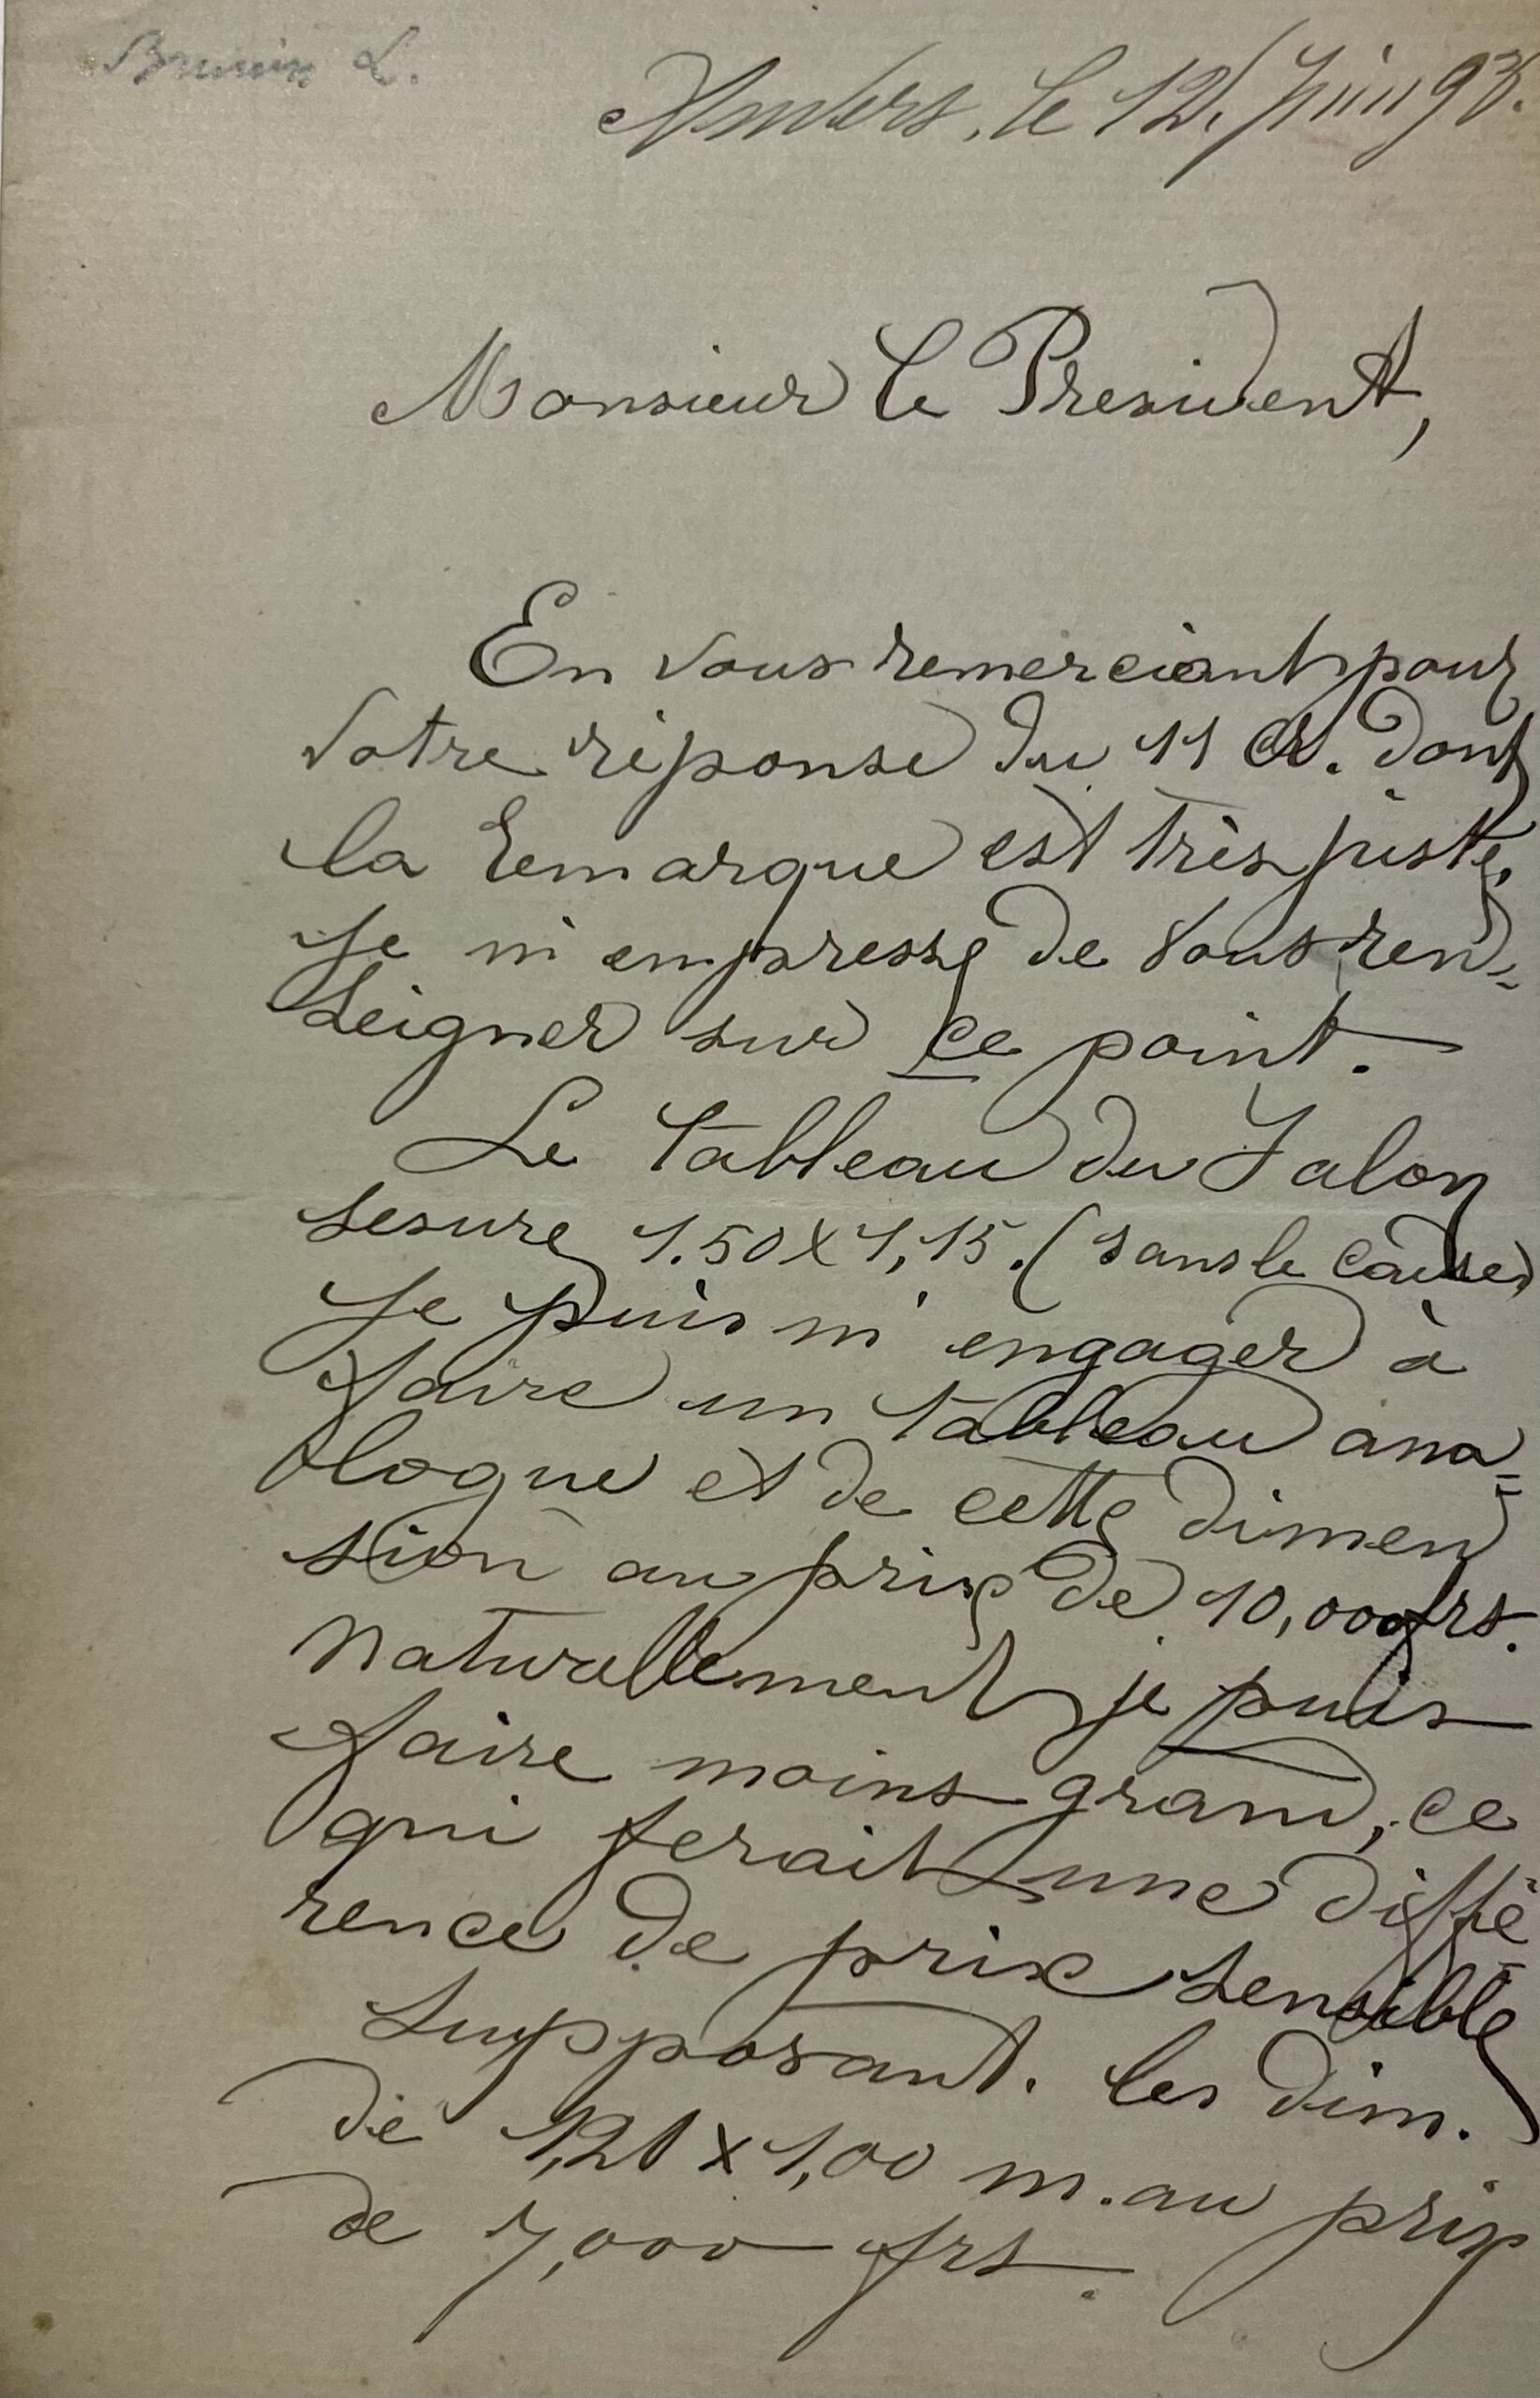 Brunin L.
Anvers, le 12 Juin 93.
Monsieur le President,
En vous remerciant pour
votre réponse du 11 ct. dont
la remarque est très juste,
je m'empresse de vous ren-
seigner sur ce point.
Le tableau du Salon
mesure 1.50 X 1,15. (sans le cadre)
Je puis m'engager à
faire un tableau ana-
logue et de cette dimen
sion au prix de 10,000 frs.
Naturellement je puis
faire moins grand, ce
qui ferait une diffé-
rence de prix sensible
Supposant. les dim.
de 1,20 x 1,00 m. au prix
de 7,000 frs.